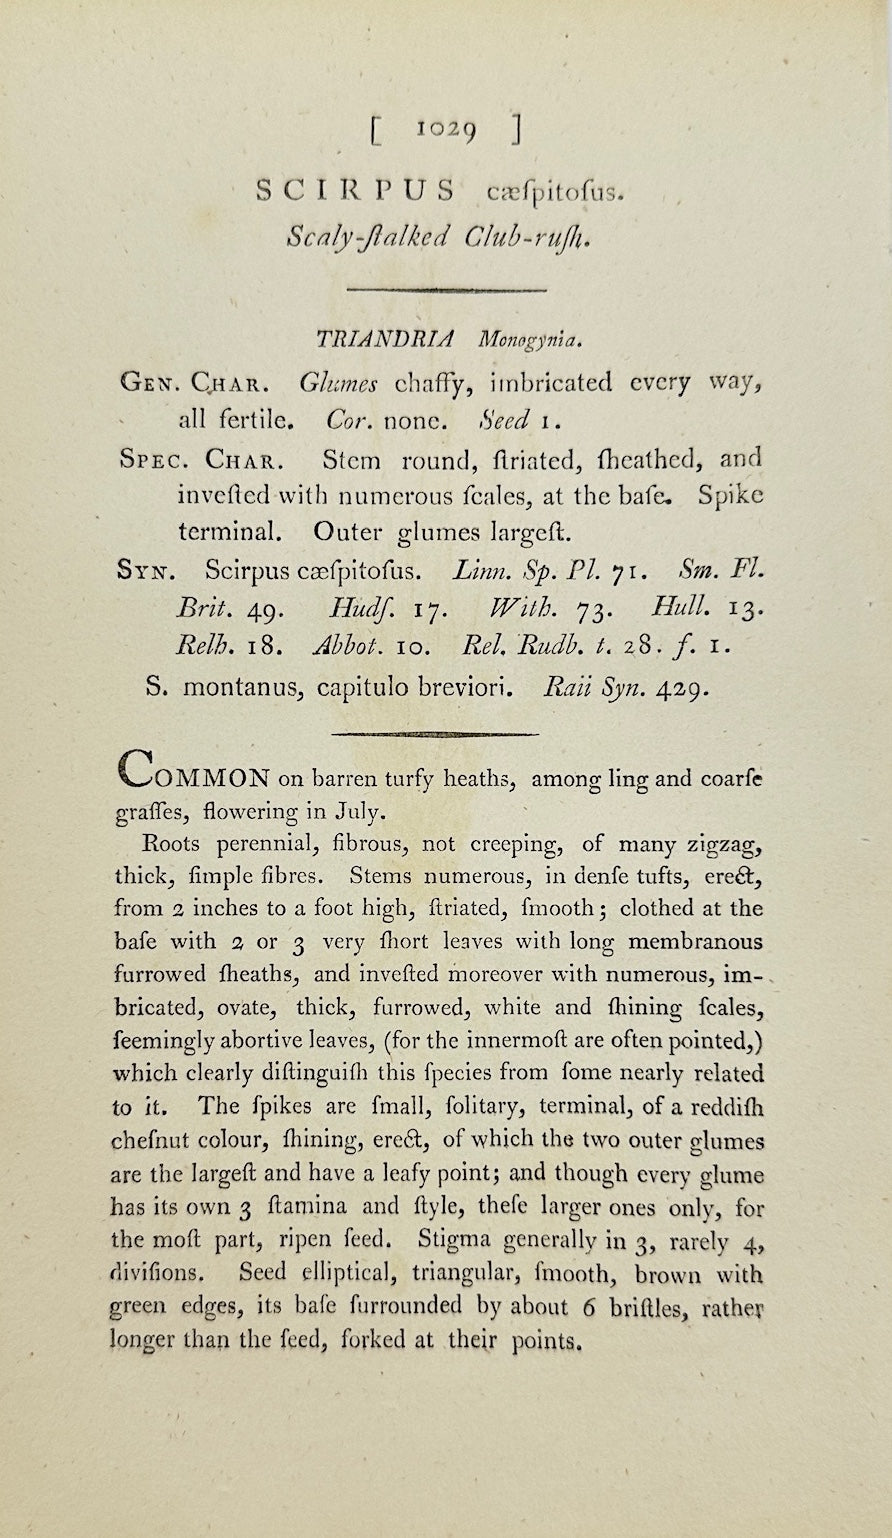 [ 1029 ]
SCIRPUS cæſpitoſus.
Scaly-ſtalked Club-ruſh.
TRIANDRIA Monogynia.
GEN. CHAR. Glumes chaffy, imbricated every way,
all fertile. Cor. none. Seed 1.
SPEC. CHAR. Stem round, ſtriated, ſheathed, and
inveſted with numerous ſcales, at the baſe. Spike
terminal. Outer glumes largeſt.
SYN. Scirpus cæſpitoſus. Linn. Sp. Pl. 71. Sm. Fl.
Brit. 49. Hudſ. 17. With. 73. Hull. 13.
Relh. 18. Abbot. 10. Rel. Rudb. t. 28. f. 1.
S. montanus, capitulo breviori. Raii Syn. 429.
COMMON on barren turfy heaths, among ling and coarſe
graſſes, flowering in July.
Roots perennial, fibrous, not creeping, of many zigzag,
thick, ſimple fibres. Stems numerous, in denſe tufts, erect,
from 2 inches to a foot high, ſtriated, ſmooth; clothed at the
baſe with 2 or 3 very ſhort leaves with long membranous
furrowed ſheaths, and inveſted moreover with numerous, im-
bricated, ovate, thick, furrowed, white and ſhining ſcales,
ſeemingly abortive leaves, (for the innermoſt are often pointed,)
which clearly diſtinguiſh this ſpecies from ſome nearly related
to it. The ſpikes are ſmall, ſolitary, terminal, of a reddiſh
cheſnut colour, ſhining, erect, of which the two outer glumes
are the largeſt and have a leafy point; and though every glume
has its own 3 ſtamina and ſtyle, theſe larger ones only, for
the moſt part, ripen ſeed. Stigma generally in 3, rarely 4,
diviſions. Seed elliptical, triangular, ſmooth, brown with
green edges, its baſe ſurrounded by about 6 briſtles, rather
longer than the ſeed, forked at their points.